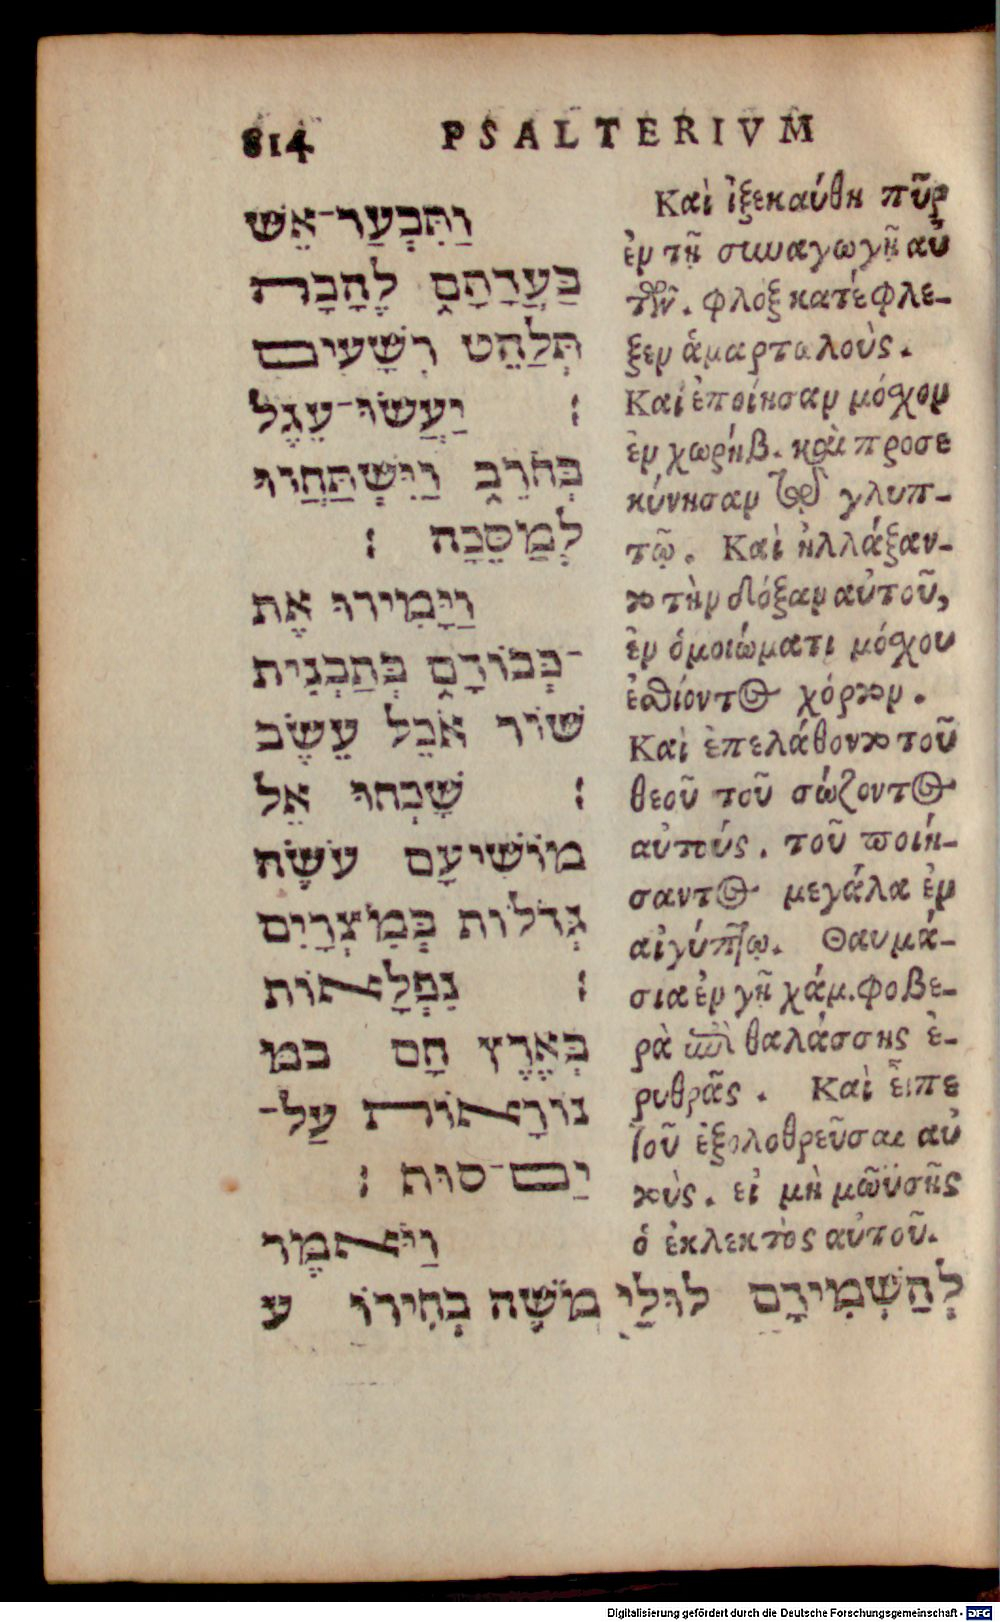 814 PSALTERIVM
וַתִּבְעַר־אֵשׁ
בַּעֲדָתָם לֶהָבָה
תְּלַהֵט רְשָׁעִים
׃ יַעֲשׂוּ־עֵגֶל
בְּחֹרֵב וַיִּשְׁתַּחֲווּ
לְמַסֵּכָה ׃
וַיָּמִירוּ אֶת
־כְּבוֹדָם בְּתַבְנִית
שׁוֹר אֹכֵל עֵשֶׂב
׃ שָׁכְחוּ אֵל
מוֹשִׁיעָם עֹשֶׂה
גְדֹלוֹת בְּמִצְרָיִם
׃ נִפְלָאוֹת
בְּאֶרֶץ חָם במ
נוֹרָאוֹת עַל־
יַם־סוּף ׃
וַיֹּאמֶר
לְהַשְׁמִידָם לוּלֵי מֹשֶׁה בְחִירוֹ ע
Καὶ ἐξεκαύθη πῦρ
ἐν τῇ συναγωγῇ αὐ
τῶν. φλὸξ κατέφλε-
ξεν ἁμαρτωλούς.
Καὶ ἐποίησαν μόσχον
ἐν χωρήβ. καὶ προσε
κύνησαν τῷ γλυπ-
τῷ. Καὶ ἠλλάξαν-
το τὴν δόξαν αὐτοῦ,
ἐν ὁμοιώματι μόσχου
ἐσθίοντος χόρτον.
Καὶ ἐπελάθοντο τοῦ
θεοῦ τοῦ σώζοντος
αὐτούς. τοῦ ποιή-
σαντος μεγάλα ἐν
αἰγύπτῳ. Θαυμά-
σια ἐν γῇ χάμ. φοβε-
ρὰ ἐπὶ θαλάσσης ἐ-
ρυθρᾶς. Καὶ εἶπε
τοῦ ἐξολοθρεῦσαι αὐ
τούς. εἰ μὴ μωϋσῆς
ὁ ἐκλεκτὸς αὐτοῦ.
Digitalisierung gefördert durch die Deutsche Forschungsgemeinschaft - DFG